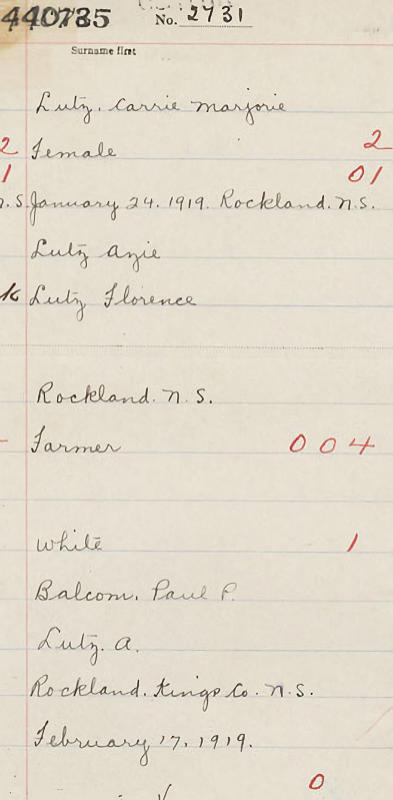 440735
No. 2731
Surname first
Lutz. Carrie Marjorie
2 Female 2
1 01
n.S. January 24. 1919. Rockland. N.S.
Lutz Azie
k Lutz Florence
Rockland. N.S.
Farmer 004
white 1
Balcom. Paul P.
Lutz. A.
Rockland. Kings Co. N.S.
February 17. 1919.
0